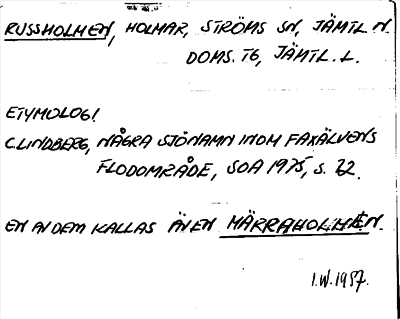 RUSSHOLMEN, HOLMAR, STRÖMS SN, JÄMTL N.
DOMS. TG, JÄMTL. L.
ETYMOLOGI
C. LINDBERG, NÅGRA SJÖNAMN INOM FAXÄLVENS
FLODOMRÅDE, SOA 1975, S. 72.
EN AV DEM KALLAS ÄVEN MÄRRAHOLMEN.
I.W. 1987.